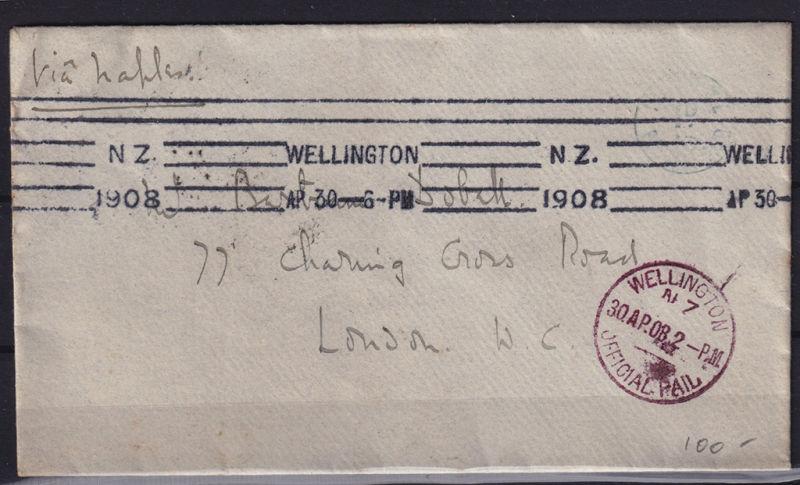 Via Naples.
N.Z. WELLINGTON N.Z. WELLIN
1908 AP 30—6-PM 1908 AP 30—
Bertram Dobell
77 Charing Cross Road
London. W. C
WELLINGTON
N.Z
30.AP.08.2-P.M
OFFICIAL PAID
100-